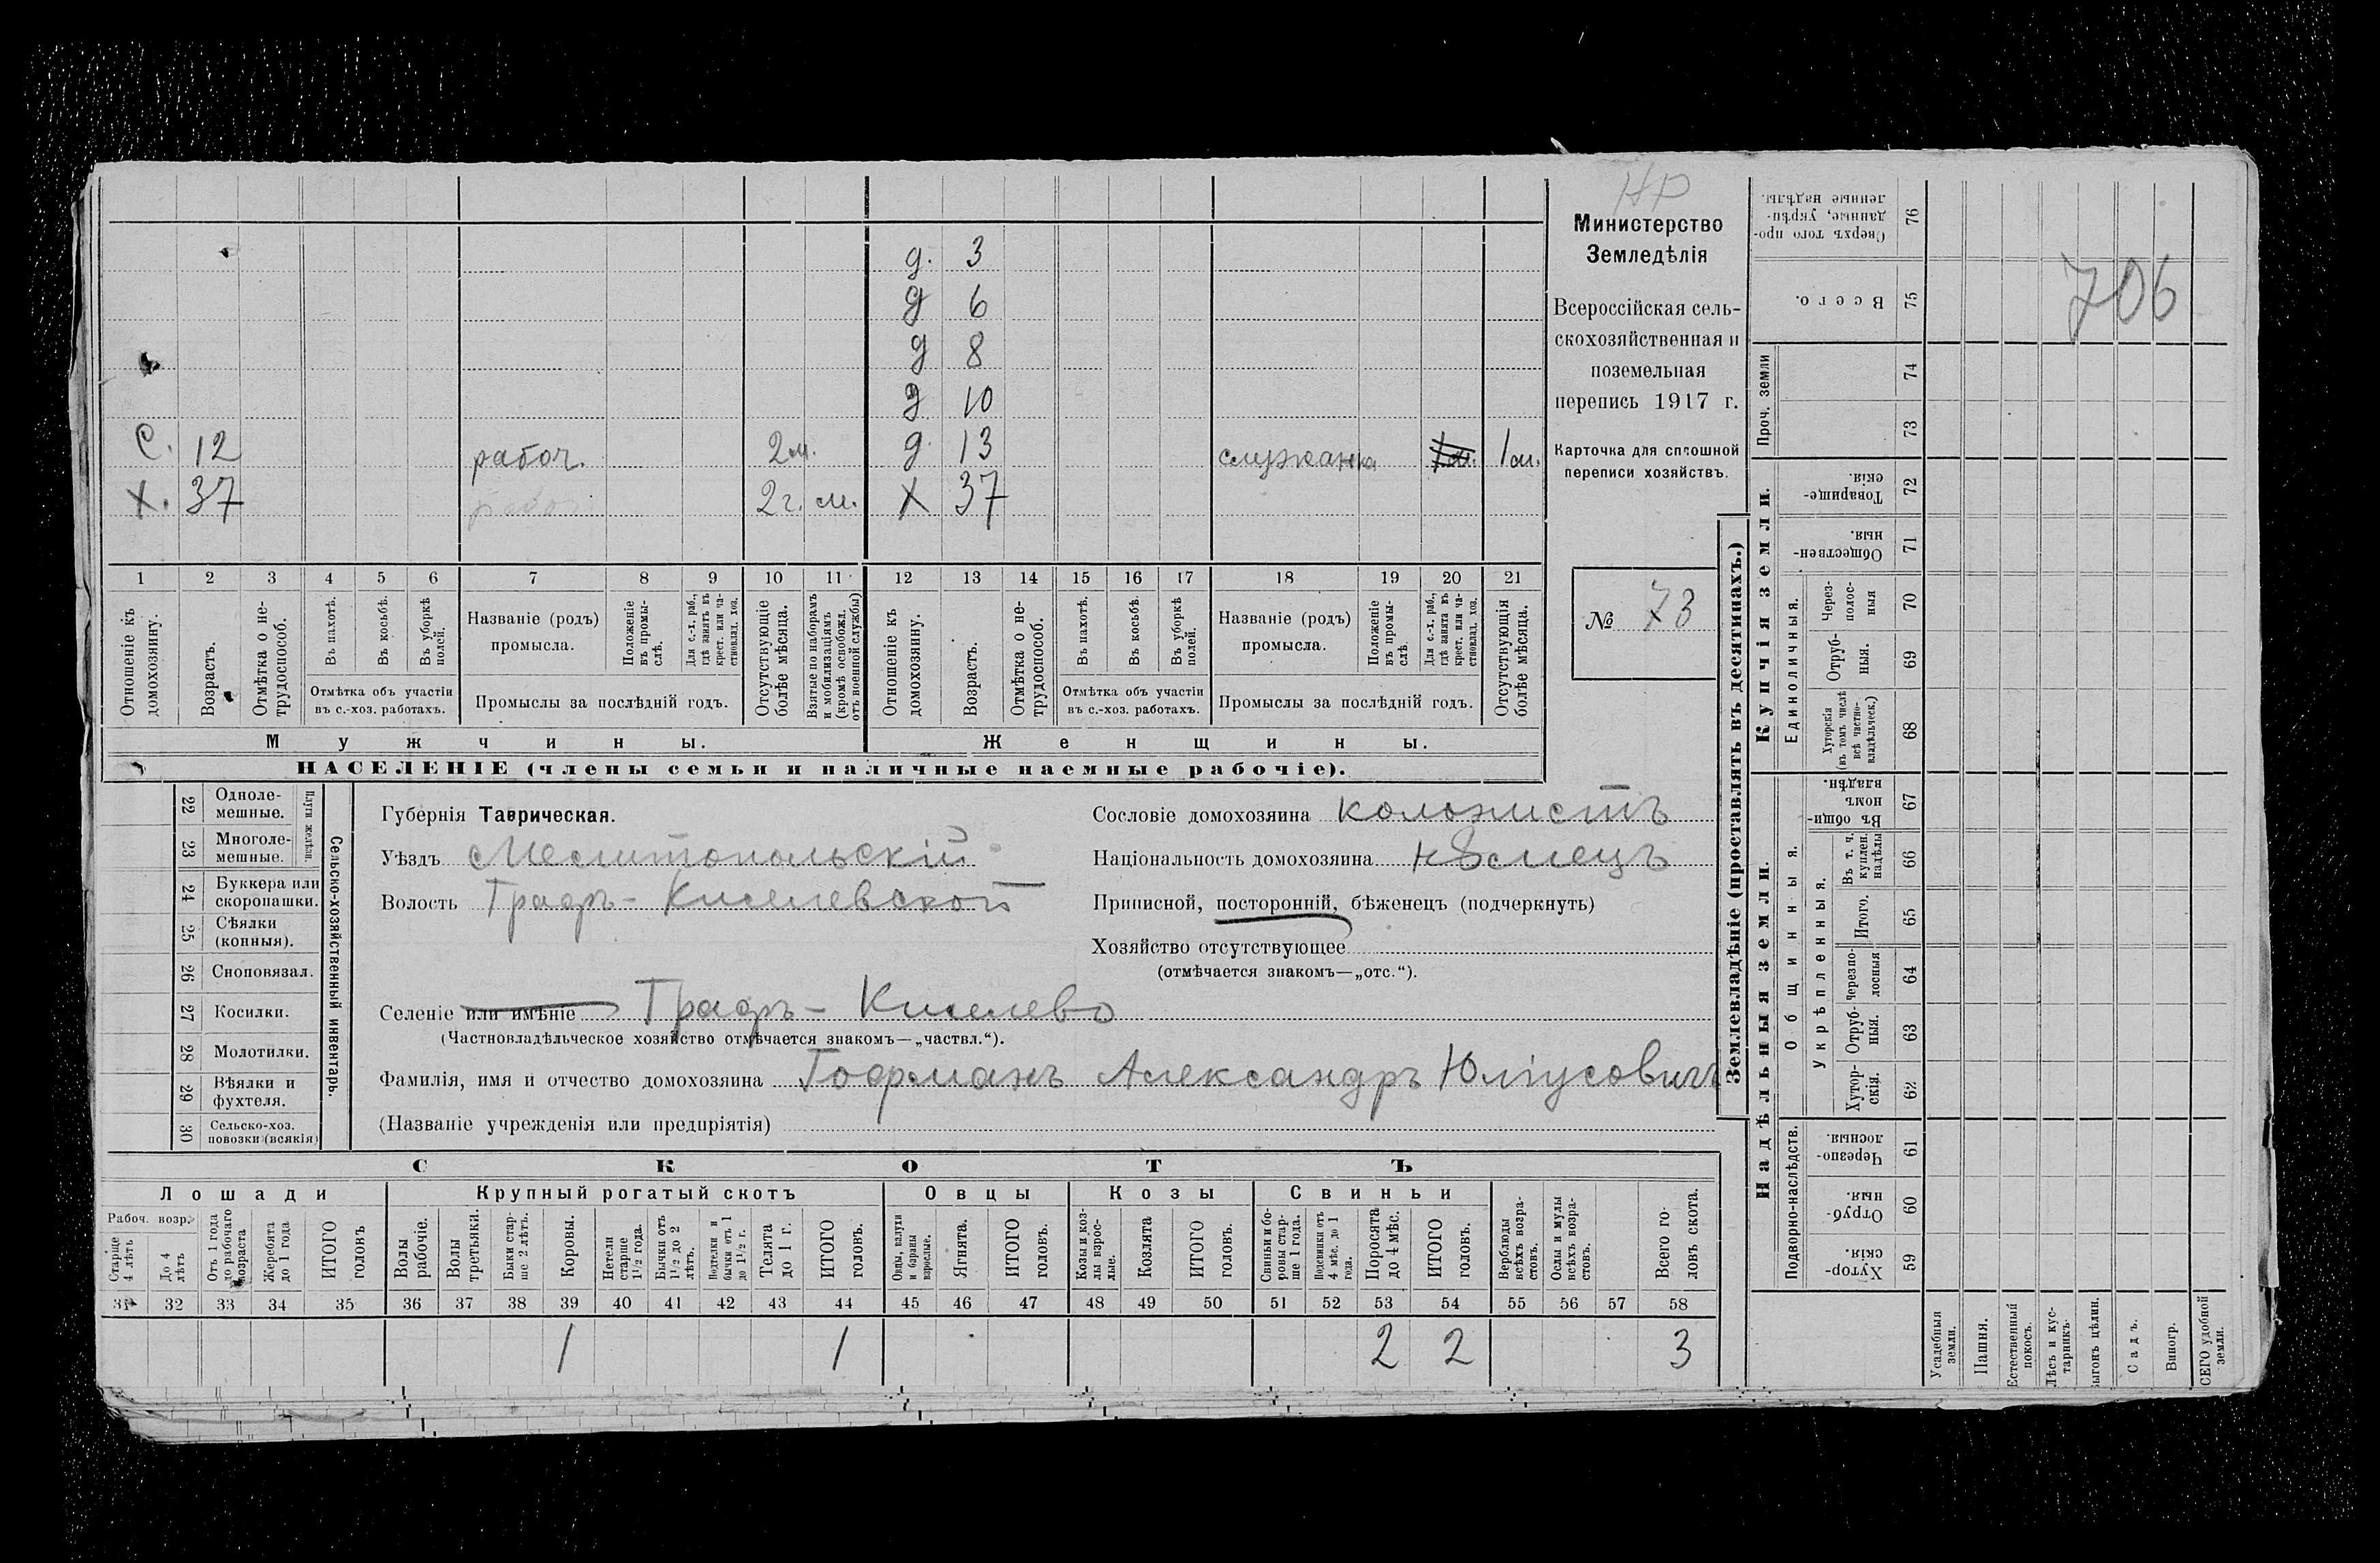 НР
Министерство
Земледѣлія
Всероссійская сель-
скохозяйственная и
поземельная
перепись 1917 г.
Карточка для сплошной
переписи хозяйствъ.
№ 73
706
д. 3
д 6
д 8
д 10
С. 12 рабоч. 2 м. д. 13 служанка 1 м. 1 м.
Х. 37 2 г. м. Х 37
1 2 3 4 5 6 7 8 9 10 11 12 13 14 15 16 17 18 19 20 21
Отношеніе къ домохозяину.
Возрастъ.
Отмѣтка о не-трудоспособ.
Въ пахотѣ.
Въ косьбѣ.
Въ уборкѣ полей.
Отмѣтка объ участіи
въ с.-хоз. работахъ.
Названіе (родъ)
промысла.
Положеніе въ промы-слѣ.
Для с.-х. раб., гдѣ занятъ въ крест. или ча-стновлад. хоз.
Промыслы за послѣдній годъ.
Отсутствующіе болѣе мѣсяца.
Взятые по наборамъ и мобилизаціямъ (кромѣ освобожд. отъ военной службы)
Отношеніе къ домохозяину.
Возрастъ.
Отмѣтка о не-трудоспособ.
Въ пахотѣ.
Въ косьбѣ.
Въ уборкѣ полей.
Отмѣтка объ участіи
въ с.-хоз. работахъ.
Названіе (родъ)
промысла.
Положеніе въ промы-слѣ.
Для с.-х. раб., гдѣ занята въ крест. или ча-стновлад. хоз.
Промыслы за послѣдній годъ.
Отсутствующія болѣе мѣсяца.
Мужчины. Женщины.
НАСЕЛЕНІЕ (члены семьи и наличные наемные рабочіе).
22 Одноле-мешные.
23 Многоле-мешные.
Плуги желѣзн.
24 Буккера или скоропашки.
25 Сѣялки (конныя).
26 Сноповязал.
27 Косилки.
28 Молотилки.
29 Вѣялки и фухтеля.
30 Сельско-хоз. повозки (всякія)
Сельско-хозяйственный инвентарь.
Губернія Таврическая.
Уѣздъ Мелитопольскій
Волость Графъ-Киселевской
Сословіе домохозяина колонистъ
Національность домохозяина нѣмецъ
Приписной, посторонній, бѣженецъ (подчеркнуть)
Хозяйство отсутствующее
(отмѣчается знакомъ—„отс.“).
Селеніе или имѣніе Графъ-Киселево
(Частновладѣльческое хозяйство отмѣчается знакомъ—„частвл.“).
Фамилія, имя и отчество домохозяина Гофманъ Александръ Юліусовичъ
(Названіе учрежденія или предпріятія)
СКОТЪ
Лошади Крупный рогатый скотъ Овцы Козы Свиньи
Рабоч. возр.
Старше 4 лѣтъ
До 4 лѣтъ
Отъ 1 года до рабочаго возраста
Жеребята до 1 года
ИТОГО головъ
Волы рабочіе.
Волы третьяки.
Быки стар-ше 2 лѣтъ.
Коровы.
Нетели старше 1 1/2 года.
Бычки отъ 1 1/2 до 2 лѣтъ.
Подтелки и бычки отъ 1 до 1 1/2 г.
Телята до 1 г.
ИТОГО головъ.
Овцы, валухи и бараны взрослые.
Ягнята.
ИТОГО головъ.
Козы и коз-лы взрос-лые.
Козлята
ИТОГО головъ.
Свиньи и бо-ровы стар-ше 1 года.
Подсвинки отъ 4 мѣс. до 1 года.
Поросята до 4 мѣс.
ИТОГО головъ.
Верблюды всѣхъ возра-стовъ.
Ослы и мулы всѣхъ возра-стовъ.
Всего го-ловъ скота.
31 32 33 34 35 36 37 38 39 40 41 42 43 44 45 46 47 48 49 50 51 52 53 54 55 56 57 58
1 1 2 2 3
Землевладѣніе (проставлять въ десятинахъ.)
Купчія земли.
Надѣльныя земли.
Сверхъ того про-данные, укрѣп-ленные надѣлы. 76
Всего. 75
Проч. земли
74
73
Товарище-скія. 72
Обществен-ныя. 71
Единоличныя.
Через-полос-ныя 70
Отруб-ныя. 69
Хуторскія (въ томъ числѣ всѣ частно-владѣльческ.) 68
Общинныя.
Въ общин-номъ владѣн. 67
Укрѣпленныя.
Въ т. ч. куплен. надѣлы 66
Итого. 65
Черезпо-лосныя 64
Отруб-ныя. 63
Хутор-скія. 62
Подворно-наслѣдств.
Черезпо-лосныя. 61
Отруб-ныя. 60
Хутор-скія. 59
Усадебныя земли.
Пашня.
Естественный покосъ.
Лѣсъ и кус-тарникъ.
Выгонъ цѣлин.
Садъ.
Виногр.
ВСЕГО удобной земли.